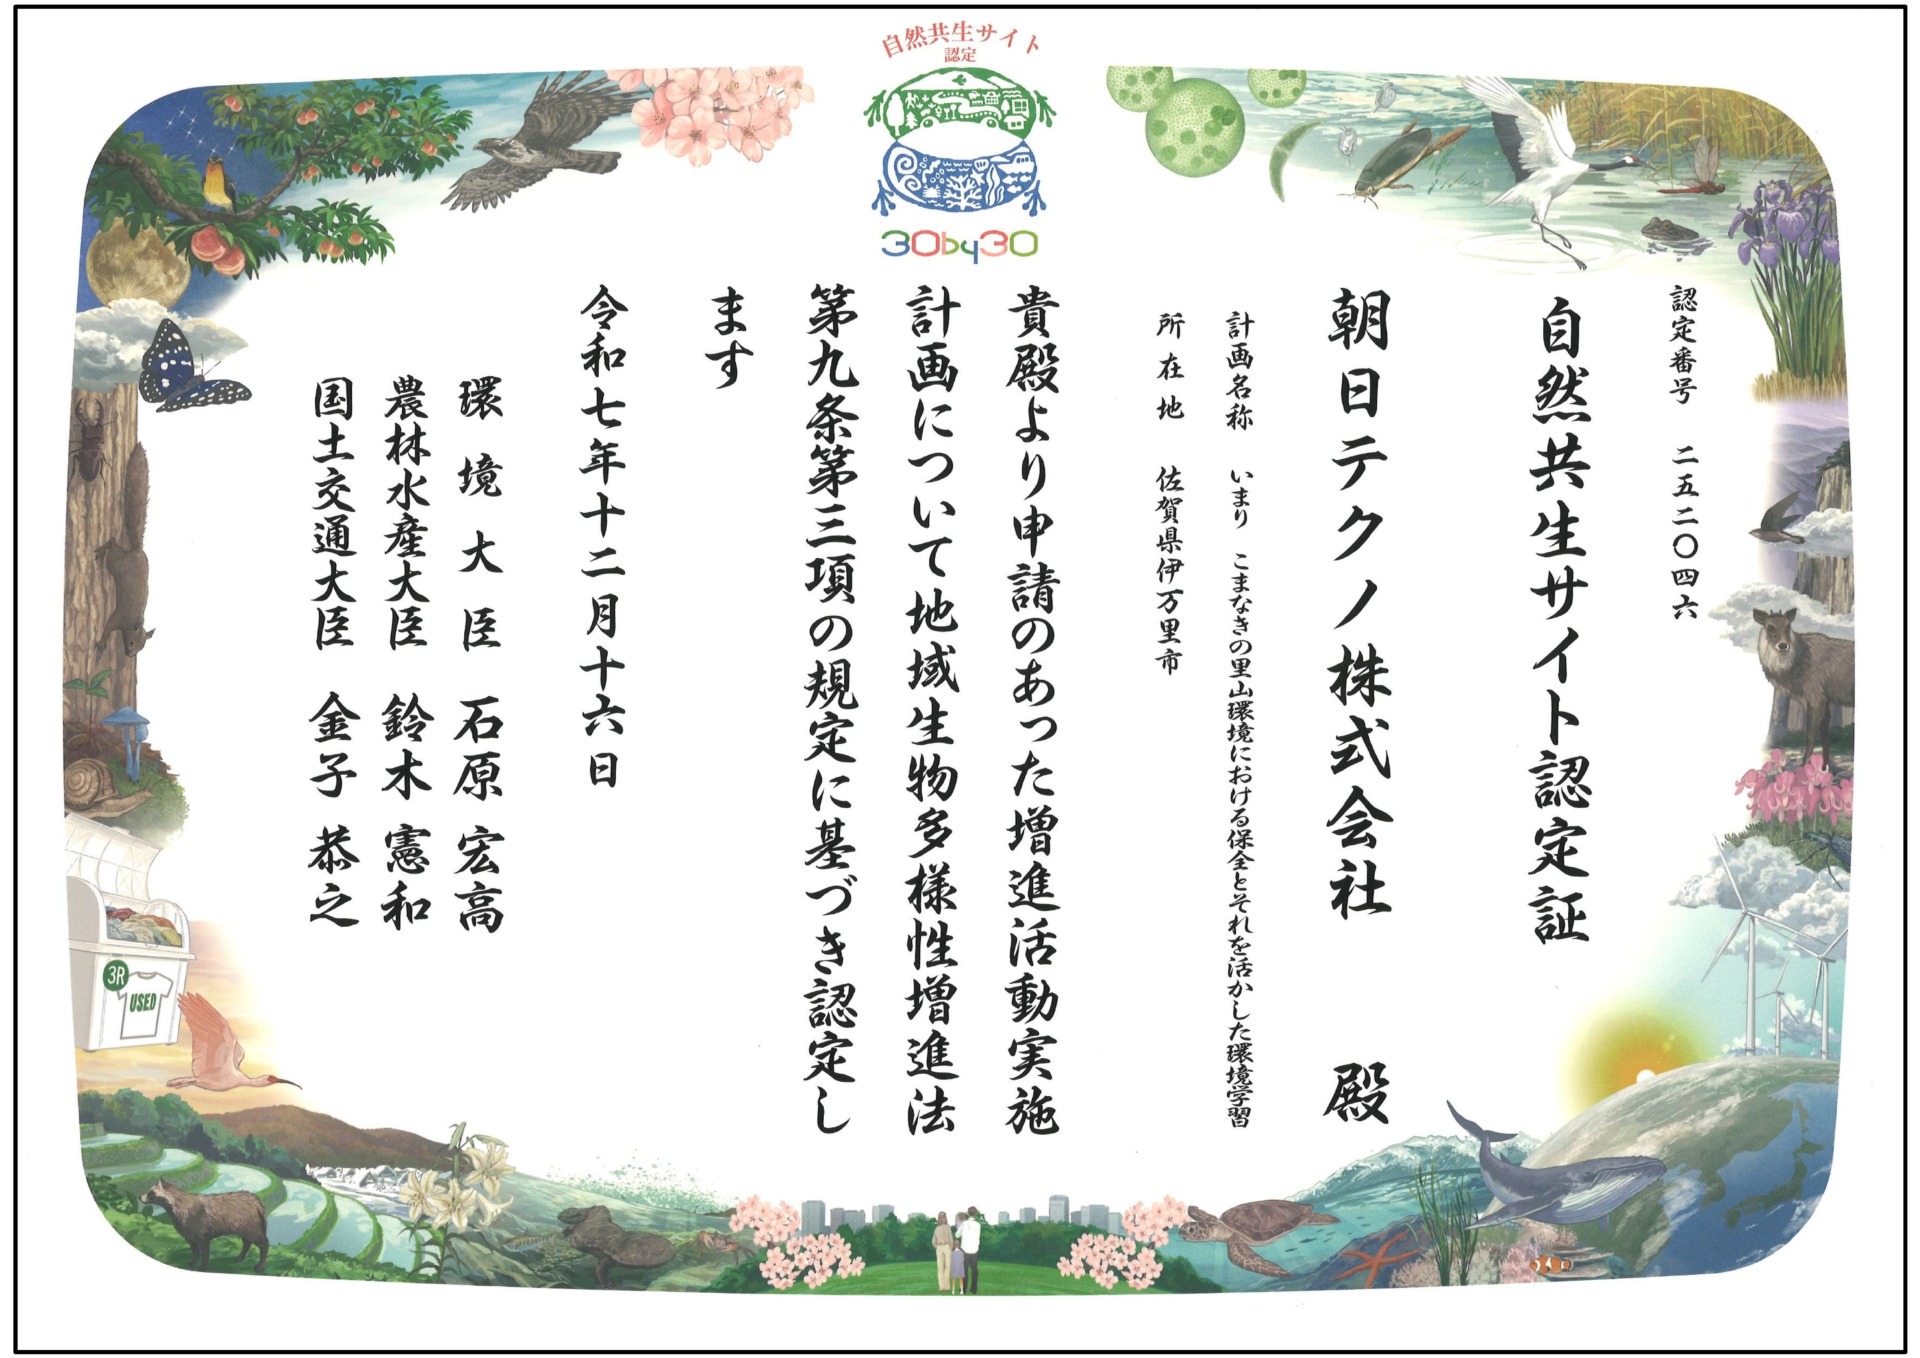 自然共生サイト
認定
30by30
認定番号 二五二〇四六
自然共生サイト認定証
朝日テクノ株式会社 殿
計画名称 いまり こまなきの里山環境における保全とそれを活かした環境学習
所在地 佐賀県伊万里市
貴殿より申請のあった増進活動実施
計画について地域生物多様性増進法
第九条第三項の規定に基づき認定し
ます
令和七年十二月十六日
環境大臣 石原 宏高
農林水産大臣 鈴木 憲和
国土交通大臣 金子 恭之
3R
USED